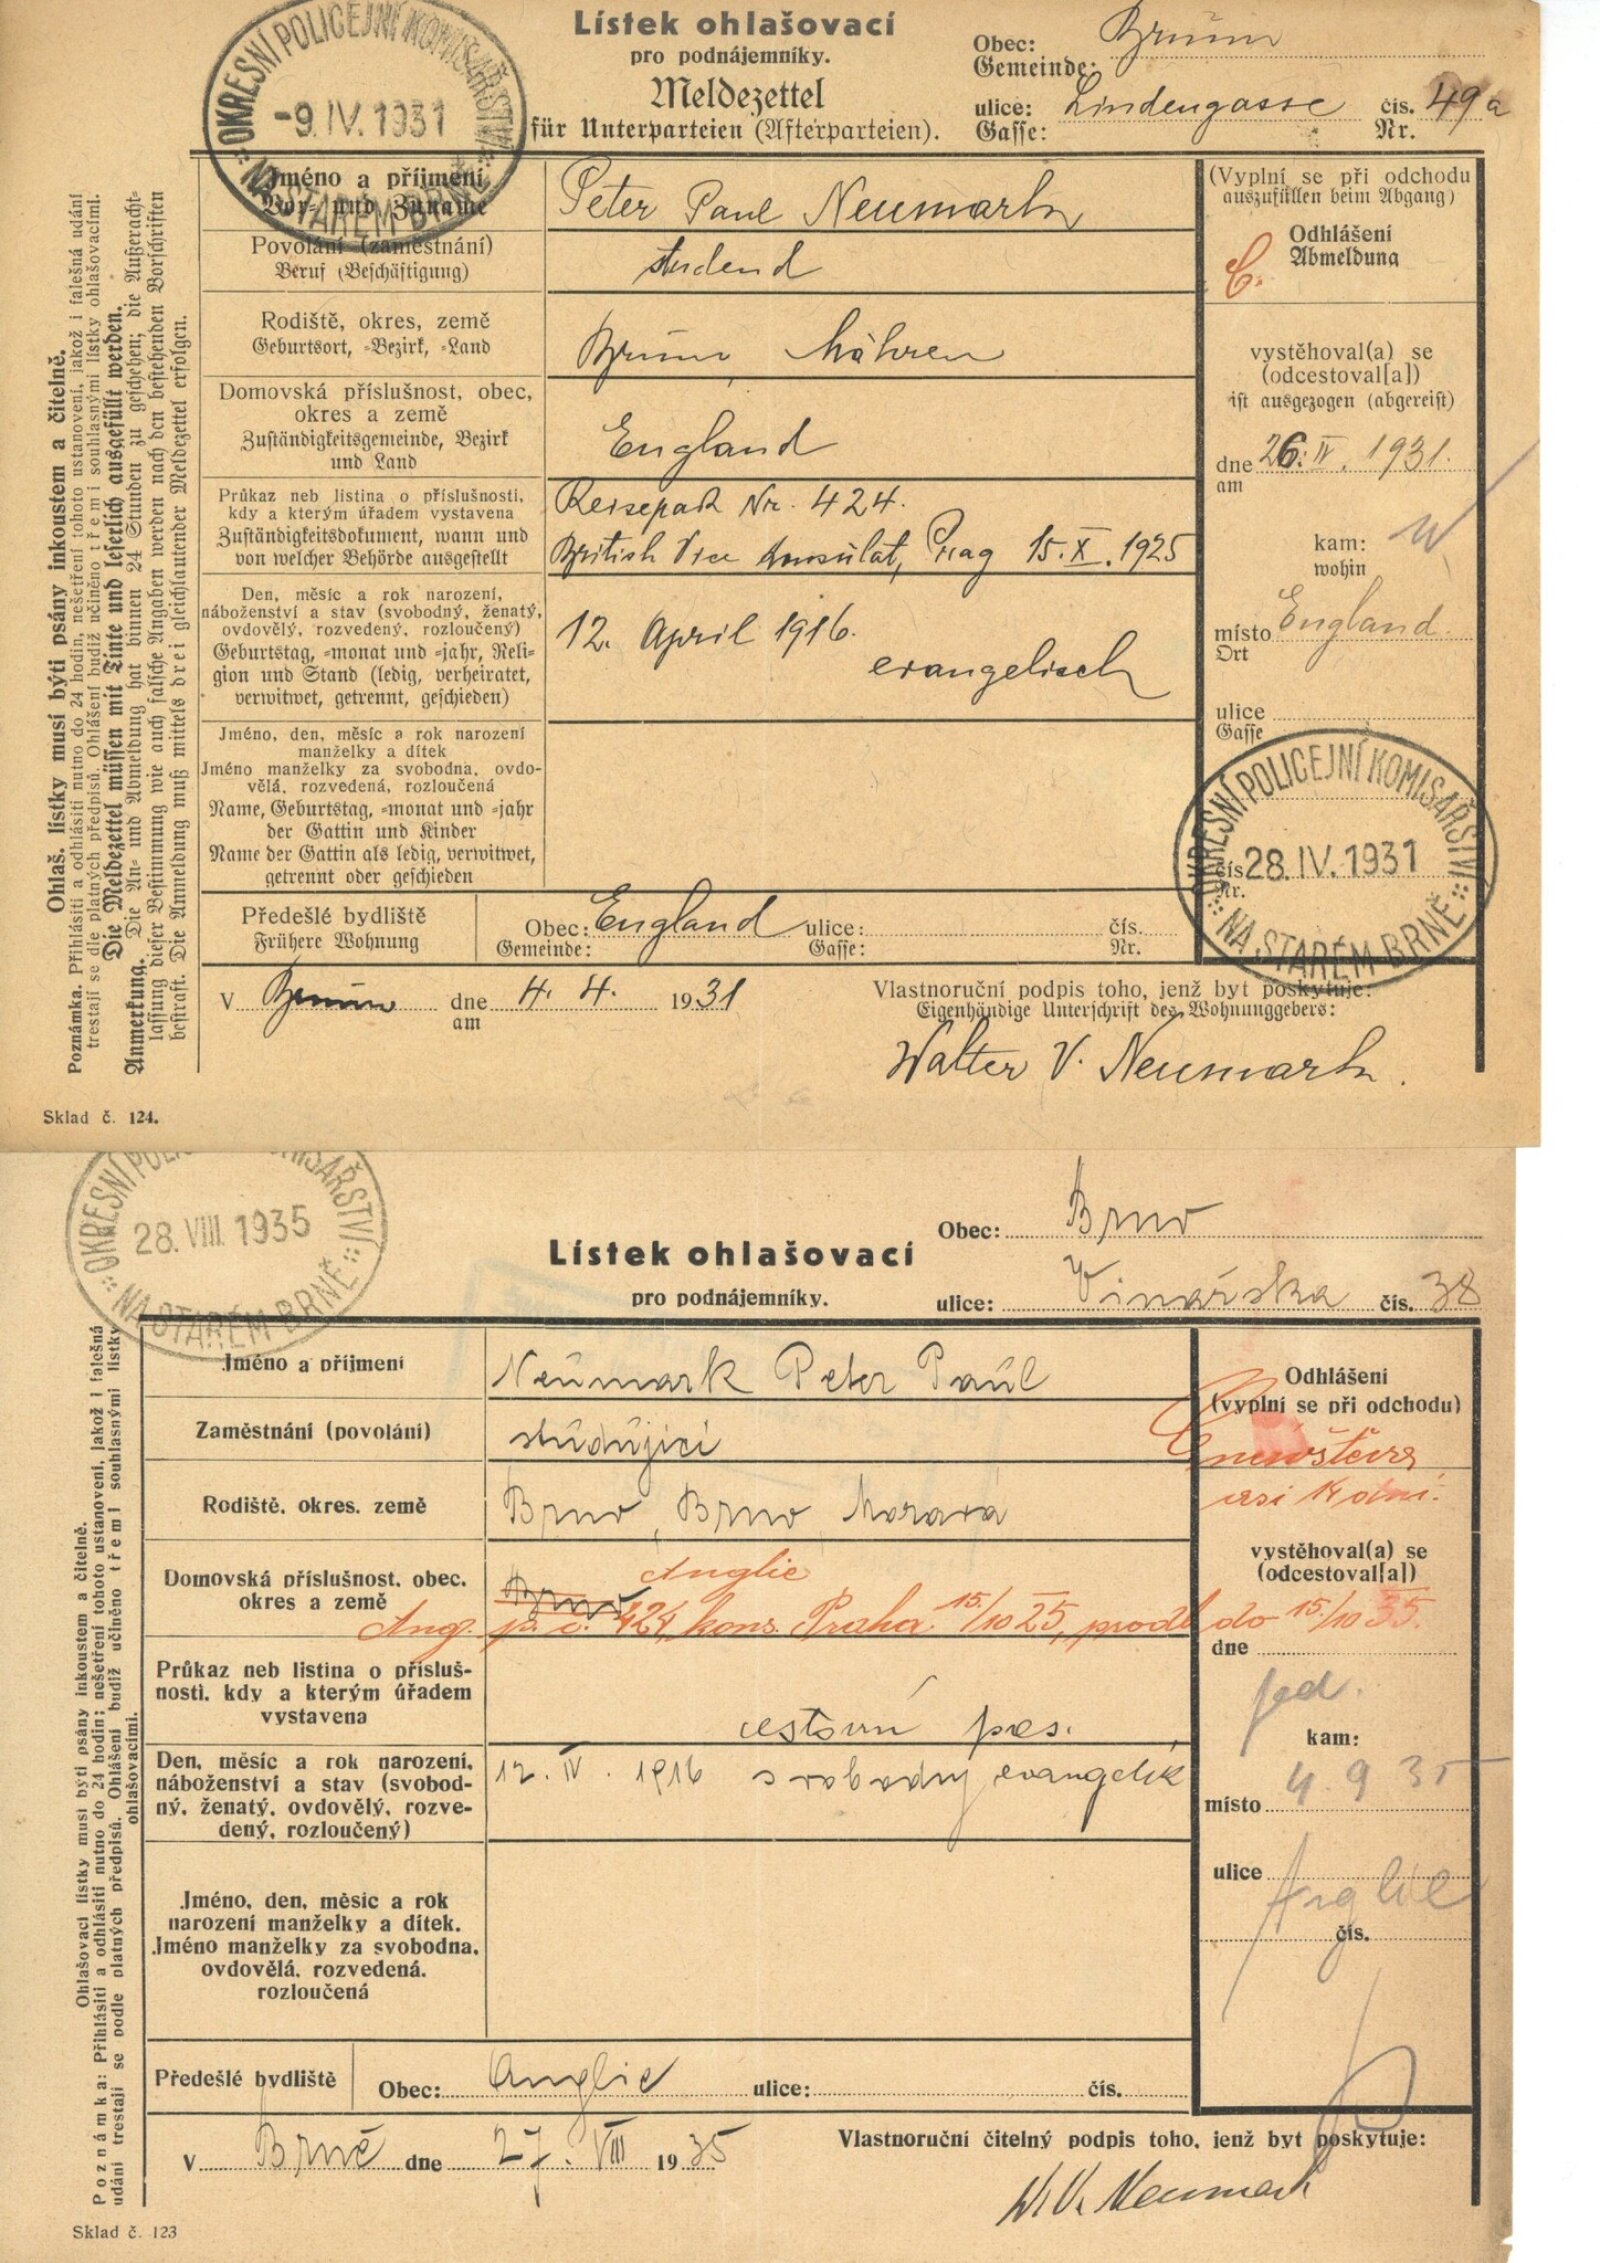 Lístek ohlašovací
pro podnájemníky.
Meldezettel
für Unterparteien (Afterparteien).
Obec: Brünn
Gemeinde:
ulice: Lindengasse čís. 49a
Gasse: Nr.
OKRESNÍ POLICEJNÍ KOMISAŘSTVÍ
-9. IV. 1931
NA STARÉM BRNĚ
Jméno a příjmení
Vor- und Zuname
Peter Paul Neumark
Povolání (zaměstnání)
Beruf (Beschäftigung)
studend
Rodiště, okres, země
Geburtsort, -Bezirk, -Land
Brünn, Mähren
Domovská příslušnost, obec,
okres a země
Zuständigkeitsgemeinde, Bezirk
und Land
England
Průkaz neb listina o příslušnosti,
kdy a kterým úřadem vystavena
Zuständigkeitsdokument, wann und
von welcher Behörde ausgestellt
Reisepaß Nr. 424.
British Vice Konsulat, Prag 15. X. 1925
Den, měsíc a rok narození,
náboženství a stav (svobodný, ženatý,
ovdovělý, rozvedený, rozloučený)
Geburtstag, -monat und -jahr, Reli-
gion und Stand (ledig, verheiratet,
verwitwet, getrennt, geschieden)
12. April 1916.
evangelisch
Jméno, den, měsíc a rok narození
manželky a dítek
Jméno manželky za svobodna, ovdo-
vělá, rozvedená, rozloučená
Name, Geburtstag, -monat und -jahr
der Gattin und Kinder
Name der Gattin als ledig, verwitwet,
getrennt oder geschieden
Předešlé bydliště
Frühere Wohnung
Obec: England ulice: čís.
Gemeinde: Gasse: Nr.
V Brünn dne 4. 4. 1931
am
Vlastnoruční podpis toho, jenž byt poskytuje:
Eigenhändige Unterschrift des Wohnunggebers:
Walter V. Neumark.
(Vyplní se při odchodu
auszufüllen beim Abgang)
Odhlášení
Abmeldung
C.
vystěhoval(a) se
(odcestoval[a])
ist ausgezogen (abgereist)
dne 26. IV. 1931.
am
kam:
wohin
místo England.
Ort
ulice
Gasse
OKRESNÍ POLICEJNÍ KOMISAŘSTVÍ
čís.
28. IV. 1931
Nr.
NA STARÉM BRNĚ
Ohlaš. lístky musí býti psány inkoustem a čitelně.
Poznámka. Přihlásiti a odhlásiti nutno do 24 hodin, nešetření tohoto ustanovení, jakož i falešná udání
trestají se dle platných předpisů. Ohlášení budiž učiněno třemi souhlasnými lístky ohlašovacími.
Die Meldezettel müssen mit Tinte und leserlich ausgefüllt werden.
Anmerkung. Die An- und Abmeldung hat binnen 24 Stunden zu geschehen; die Außeracht-
lassung dieser Bestimmung wie auch falsche Angaben werden nach den bestehenden Vorschriften
bestraft. Die Anmeldung muß mittels drei gleichlautender Meldezettel erfolgen.
Sklad č. 124.
OKRESNÍ POLICEJNÍ KOMISAŘSTVÍ
28. VIII. 1935
NA STARÉM BRNĚ
Lístek ohlašovací
pro podnájemníky.
Obec: Brno
ulice: Vinařska čís. 38
Jméno a příjmení
Neumark Peter Paul
Zaměstnání (povolání)
studující
Rodiště, okres, země
Brno, Brno Morava
Domovská příslušnost, obec,
okres a země
Brno
Anglie
Ang. p. č. 424, kons. Praha 15./10 25, prodl. do 15./10 35.
Průkaz neb listina o přísluš-
nosti, kdy a kterým úřadem
vystavena
cestovní pas.
Den, měsíc a rok narození,
náboženství a stav (svobod-
ný, ženatý, ovdovělý, rozve-
dený, rozloučený)
12. IV. 1916 svobodný, evangelík
Jméno, den, měsíc a rok
narození manželky a dítek.
Jméno manželky za svobodna,
ovdovělá, rozvedená,
rozloučená
Předešlé bydliště
Obec: Anglie ulice: čís.
V Brně dne 27. VIII 1935
Vlastnoruční čitelný podpis toho, jenž byt poskytuje:
W. V. Neumark
Odhlášení
(vyplní se při odchodu)
asi 14 dní.
vystěhoval(a) se
(odcestoval[a])
dne
kam:
místo 4. 9 35
ulice Anglie
čís.
Ohlašovací lístky musí býti psány inkoustem a čitelně.
Poznámka: Přihlásiti a odhlásiti nutno do 24 hodin; nešetření tohoto ustanovení, jakož i falešná
udání trestají se podle platných předpisů. Ohlášení budiž učiněno třemi souhlasnými lístky
ohlašovacími.
Sklad č. 123